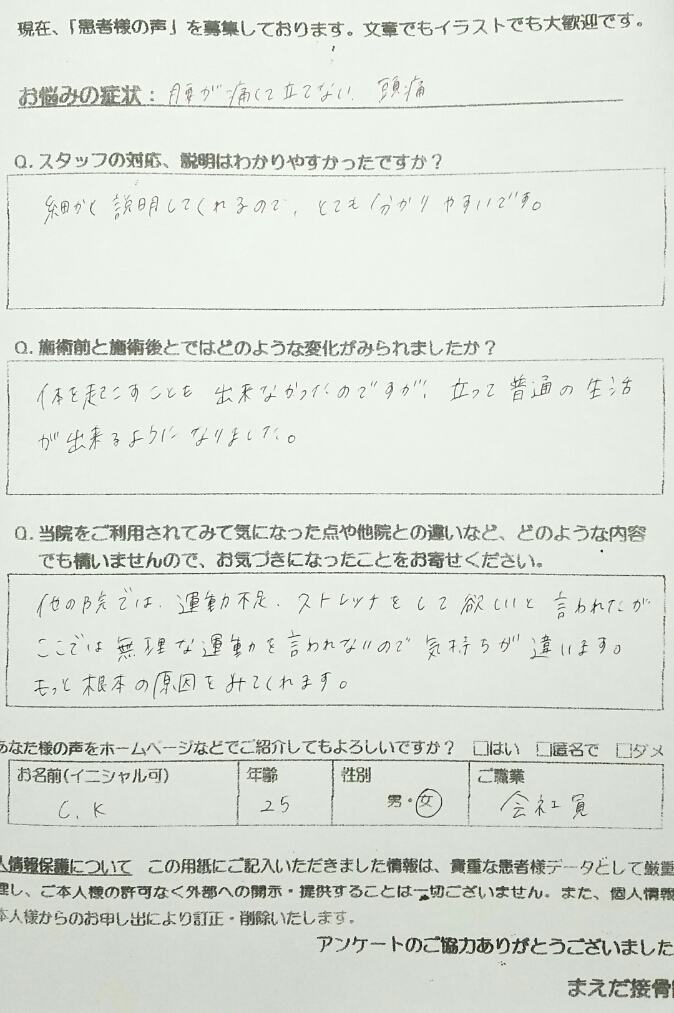 現在、「患者様の声」を募集しております。文章でもイラストでも大歓迎です。
お悩みの症状：腰が痛くて立てない、頭痛
Q. スタッフの対応、説明はわかりやすかったですか？
細かく説明してくれるので、とても分かりやすいです。
Q. 施術前と施術後とではどのような変化がみられましたか？
体を起こすことも出来なかったのですが、立って普通の生活
が出来るようになりました。
Q. 当院をご利用されてみて気になった点や他院との違いなど、どのような内容
でも構いませんので、お気づきになったことをお寄せください。
他の院では、運動不足、ストレッチをして欲しいと言われたが
ここでは無理な運動を言われないので気持ちが違います。
もっと根本の原因をみてくれます。
あなた様の声をホームページなどでご紹介してもよろしいですか？ □はい □匿名で □ダメ
お名前(イニシャル可) 年齢 性別 ご職業
C. K 25 男・女 会社員
人情報保護について この用紙にご記入いただきました情報は、貴重な患者様データとして厳重
理し、ご本人様の許可なく外部への開示・提供することは一切ございません。また、個人情報
本人様からのお申し出により訂正・削除いたします。
アンケートのご協力ありがとうございました
まえだ接骨